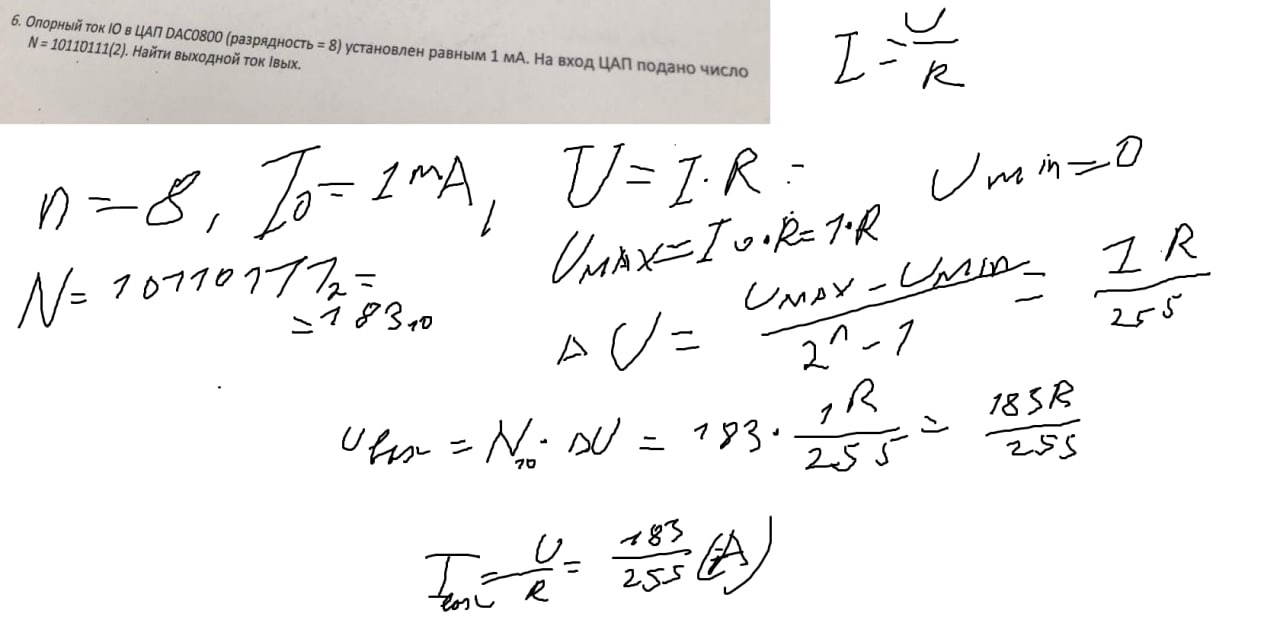 6. Опорный ток IO в ЦАП DAC0800 (разрядность = 8) установлен равным 1 мА. На вход ЦАП подано число
N = 10110111(2). Найти выходной ток Iвых.
I = U/R
n = 8, I₀ = 1 mA,
N = 10110111₂ =
= 183₁₀
U = I · R =
U min = 0
U MAX = I₀ · R = 1 · R
ΔU = (U MAX − U MIN)/(2ⁿ − 1) = 1R/255
U вых = N₁₀ · ΔU = 183 · 1R/255 = 183R/255
I вых = U/R = 183/255 (A)